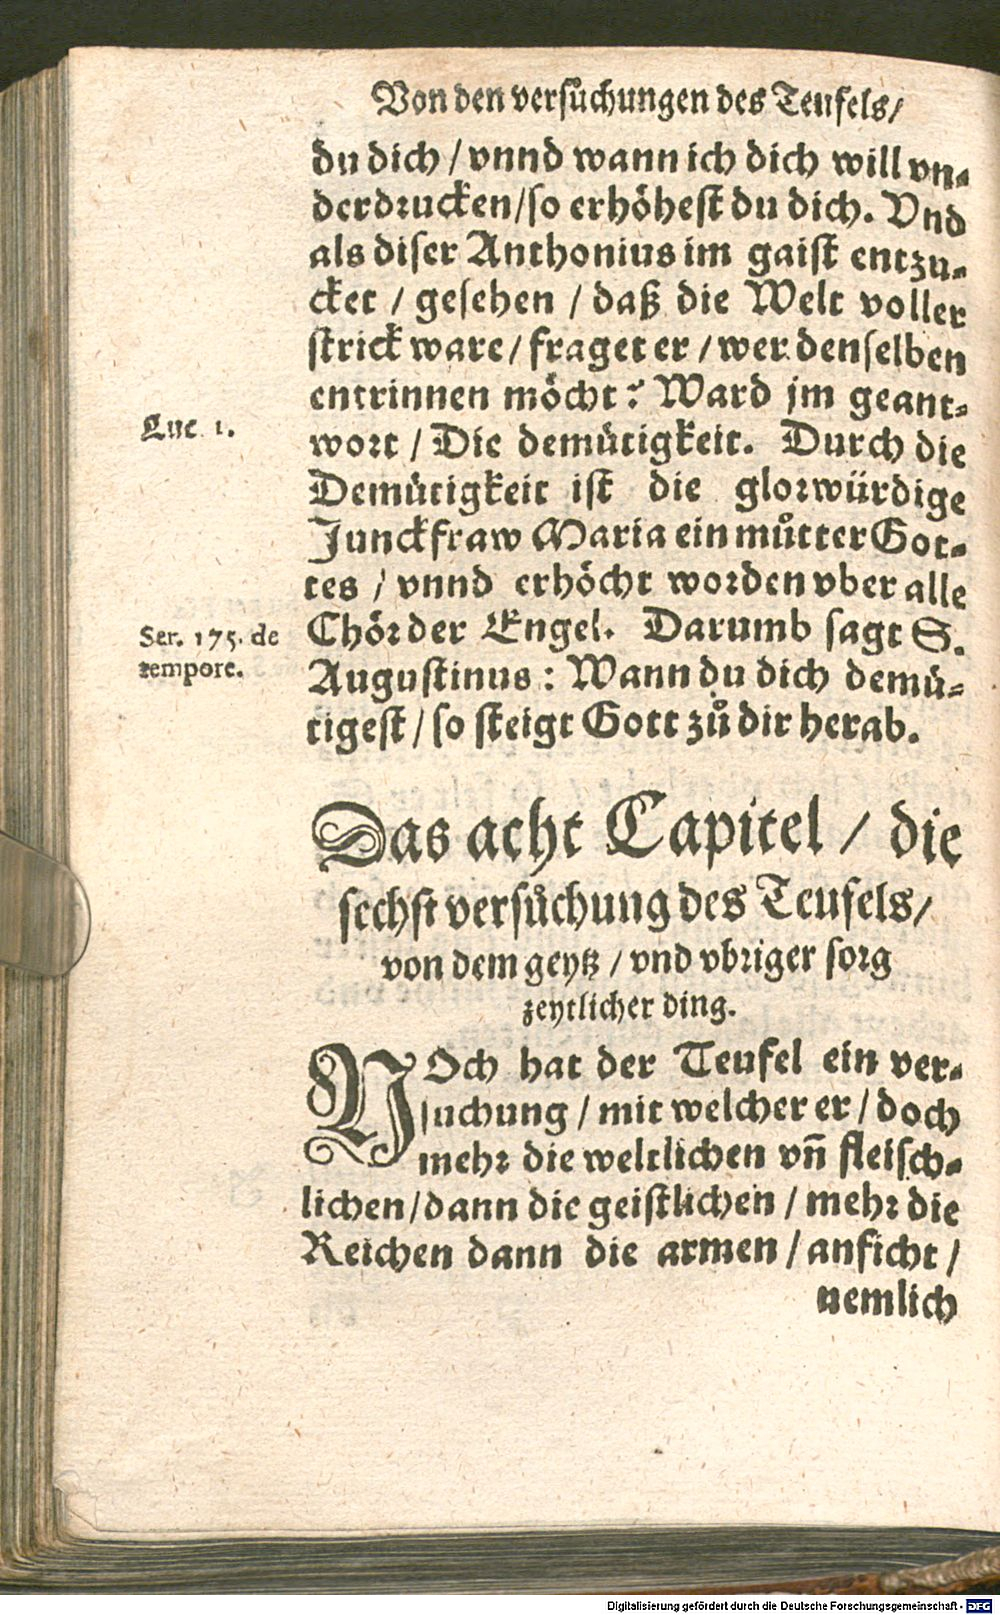 Von den versuͦchungen des Teufels/
du dich / vnnd wann ich dich will vn-
derdrucken/so erhöhest du dich. Vnd
als diser Anthonius im gaist entzu-
cket / gesehen / daß die Welt voller
strick ware / fraget er / wer denselben
entrinnen möcht? Ward jm geant-
wort / Die demütigkeit. Durch die
Luc. 1.
Demütigkeit ist die glorwürdige
Junckfraw Maria ein muͦtter Got-
tes / vnnd erhöcht worden vber alle
Chör der Engel. Darumb sagt S.
Ser. 175. de
tempore.
Augustinus: Wann du dich demü-
tigest / so steigt Gott zuͦ dir herab.
Das acht Capitel / die
sechst versuͦchung des Teufels/
von dem geytz / vnd vbriger sorg
zeytlicher ding.
NOch hat der Teufel ein ver-
suchung / mit welcher er / doch
mehr die weltlichen vn̄ fleisch-
lichen/dann die geistlichen / mehr die
Reichen dann die armen / anficht /
nemlich
Digitalisierung gefördert durch die Deutsche Forschungsgemeinschaft - DFG